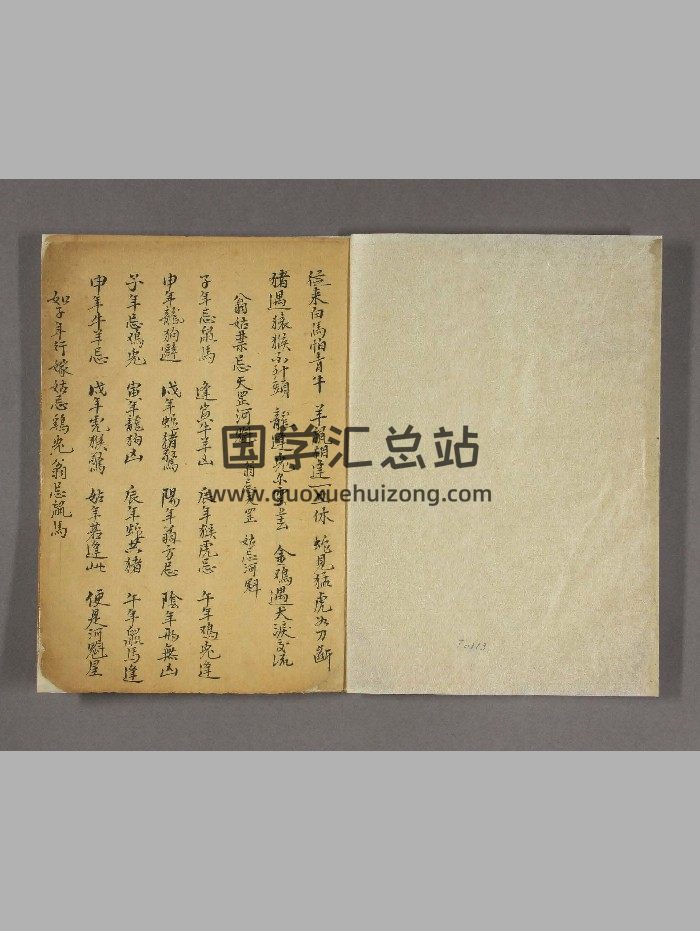 從来白馬怕青牛 羊鼠相逢一旦休 蛇見猛虎如刀断
猪遇猿猴不到頭 龍逢兎 金鷄遇犬淚交流
翁姑葉忌天罡河魁 翁忌天罡 姑忌河魁
子年忌鼠馬 逢寅牛羊凶 辰年猴虎忌 午年鷄兎逢
申年龍狗避 戌年蛇猪驚 陽年翁方忌 陰年形無凶
子年忌鷄兎 寅年龍狗凶 辰年蛇共猪 午年鼠馬逢
申年牛羊忌 戌年虎猴驚 姑年若逢此 便是河魁星
如子年行嫁姑忌鷄兎翁忌鼠馬
国学汇总站
www.guoxuehuizong.com